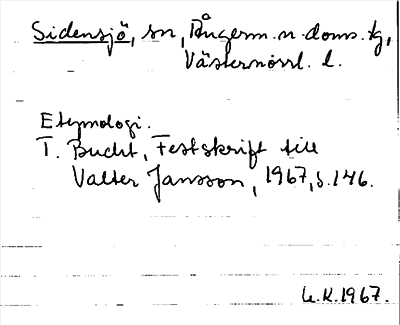 Sidensjö, sn, Ångerm. n. doms. tg,
Västernorrl. l.
Etymologi.
T. Bucht, Festskrift till
Valter Jansson, 1967, s. 146.
L.K. 1967.